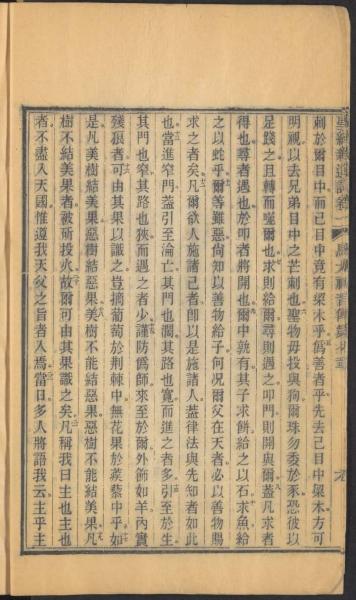 刺於爾目中而己目中竟有梁木乎僞善者乎先去己目中梁木方可
明視以去兄弟目中之芒刺也聖物毋投與狗爾珠勿委於豕恐彼以
足踐之且轉而噬爾也求則給爾尋則遇之叩門則開與爾蓋凡求者
得也尋者遇也於叩者將開也爾中孰有其子求餅給之以石求魚給
之以蛇乎爾等雖惡尚知以善物給子何况爾父在天者必以善物賜
求之者矣凡爾欲人施諸己者卽以是施諸人蓋律法與先知者如此
也當進窄門蓋引至淪亡其門也濶其路也寬而進之者多引至於生
其門也窄其路也狹而遇之者少謹防僞師來至於爾外飾如羊內實
殘狼者可由其果以識之豈摘葡萄於荆棘中無花果於蒺藜中乎如
是凡美樹結美果惡樹結惡果美樹不能結惡果惡樹不能結美果凡
樹不結美果者被斫投火故爾可由其果識之矣凡稱我曰主也主也
者不盡入天國惟遵我天父之旨者入焉當日多人將語我云主乎主